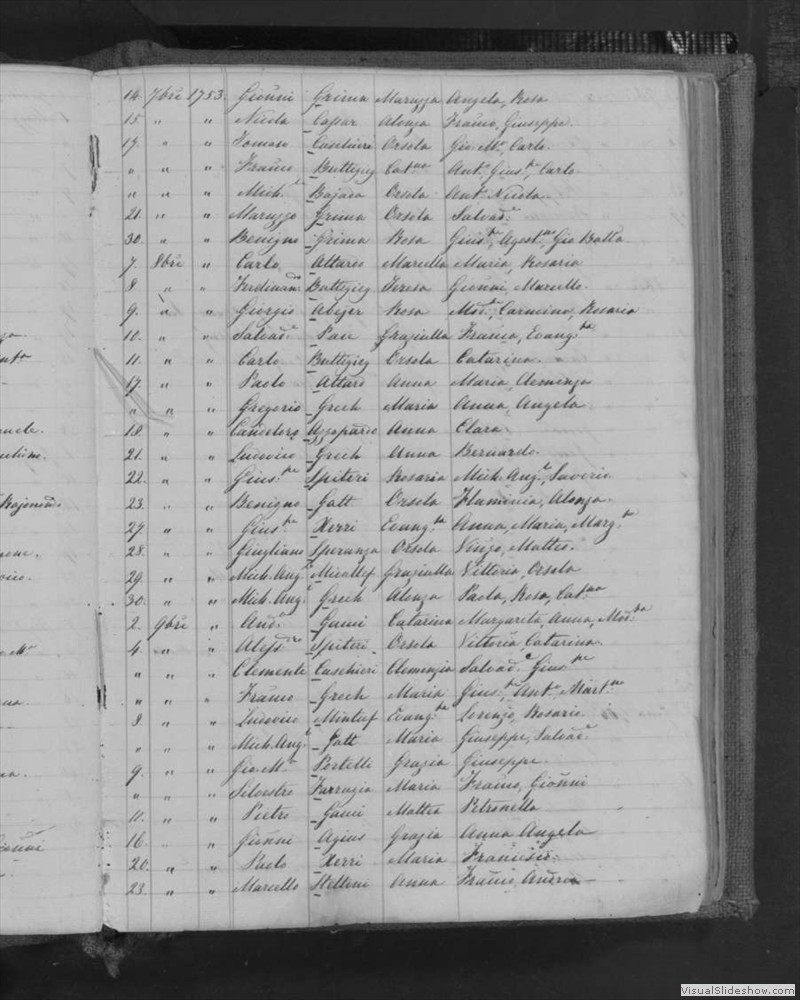 14. 7bre 1753. Gioñni Grima Maruzza Angela, Rosa
15. " " Nicola Cassar Alonza Franco, Giuseppe.
17. " " Tomaso Cuschieri Orsola Gio. Ma. Carlo.
" " " Franco Buttigieg Catna Anto, Giuspe, Carlo
" " " Michle Bajada Orsola Anto Nicola
21. " " Maruzzo Grima Orsola Salvadre
30. " " Benigno Grima Rosa Giuspe, Agostno, Gio Batta
7. 8bre " Carlo Attard Marcella Maria, Rosaria
8 " " Ferdinando Buttigieg Teresa Gioñni, Marcello.
9. " " Giorgio Abejer Rosa Modta, Carmino, Rosaria
10. " " Salvadre Pace Graziulla Franca, Evangta
11. " " Carlo Buttigieg Orsola Catarina.
17. " " Paolo Attard Anna Maria, Clemenza
" " Gregorio Grech Maria Anna, Angela
18. " " Azzopardo Anna Clara.
21. " " Ludovico Grech Anna Bernardo.
22. " " Giuspe Spiteri Rosaria Mich. Anglo, Saverio
23. " " Benigno Gatt Orsola Fluminia, Alonza.
27. " " Giuspe Xerri Evangta Anna, Maria, Margta
28. " " Giugliano Speranza Orsola Vinzo, Matteo.
29. " " Mich. Anglo Micallef Graziulla Vittoria, Orsola
30. " " Mich. Anglo Grech Alonza Paola, Rosa, Catna
2. 9bre " Andre Gauci Catarina Margarita, Anna, Modta
4. " " Alessdro Spiteri Orsola Vittoria, Catarina.
" " " Clemente Cuschieri Clemenzia Salvadre Giuspe
" " " Franco Grech Maria Giuspe, Anto, Martno
8 " " Ludovico Mintuf Evangta Lorenzo, Rosario
" " " Mich. Anglo Gatt Maria Giuseppe, Salvadre
9. " " Gio Ma Portelli Grazia Giuseppe.
" " " Silvestro Farrugia Maria Franco, Gioñni
11. " " Pietro Gauci Mattea Petronella
16. " " Gioñni Agius Grazia Anna Angela
20. " " Paolo Xerri Maria Francisco.
23. " " Marcello Stellini Anna Franco, Andrea
VisualSlideshow.com